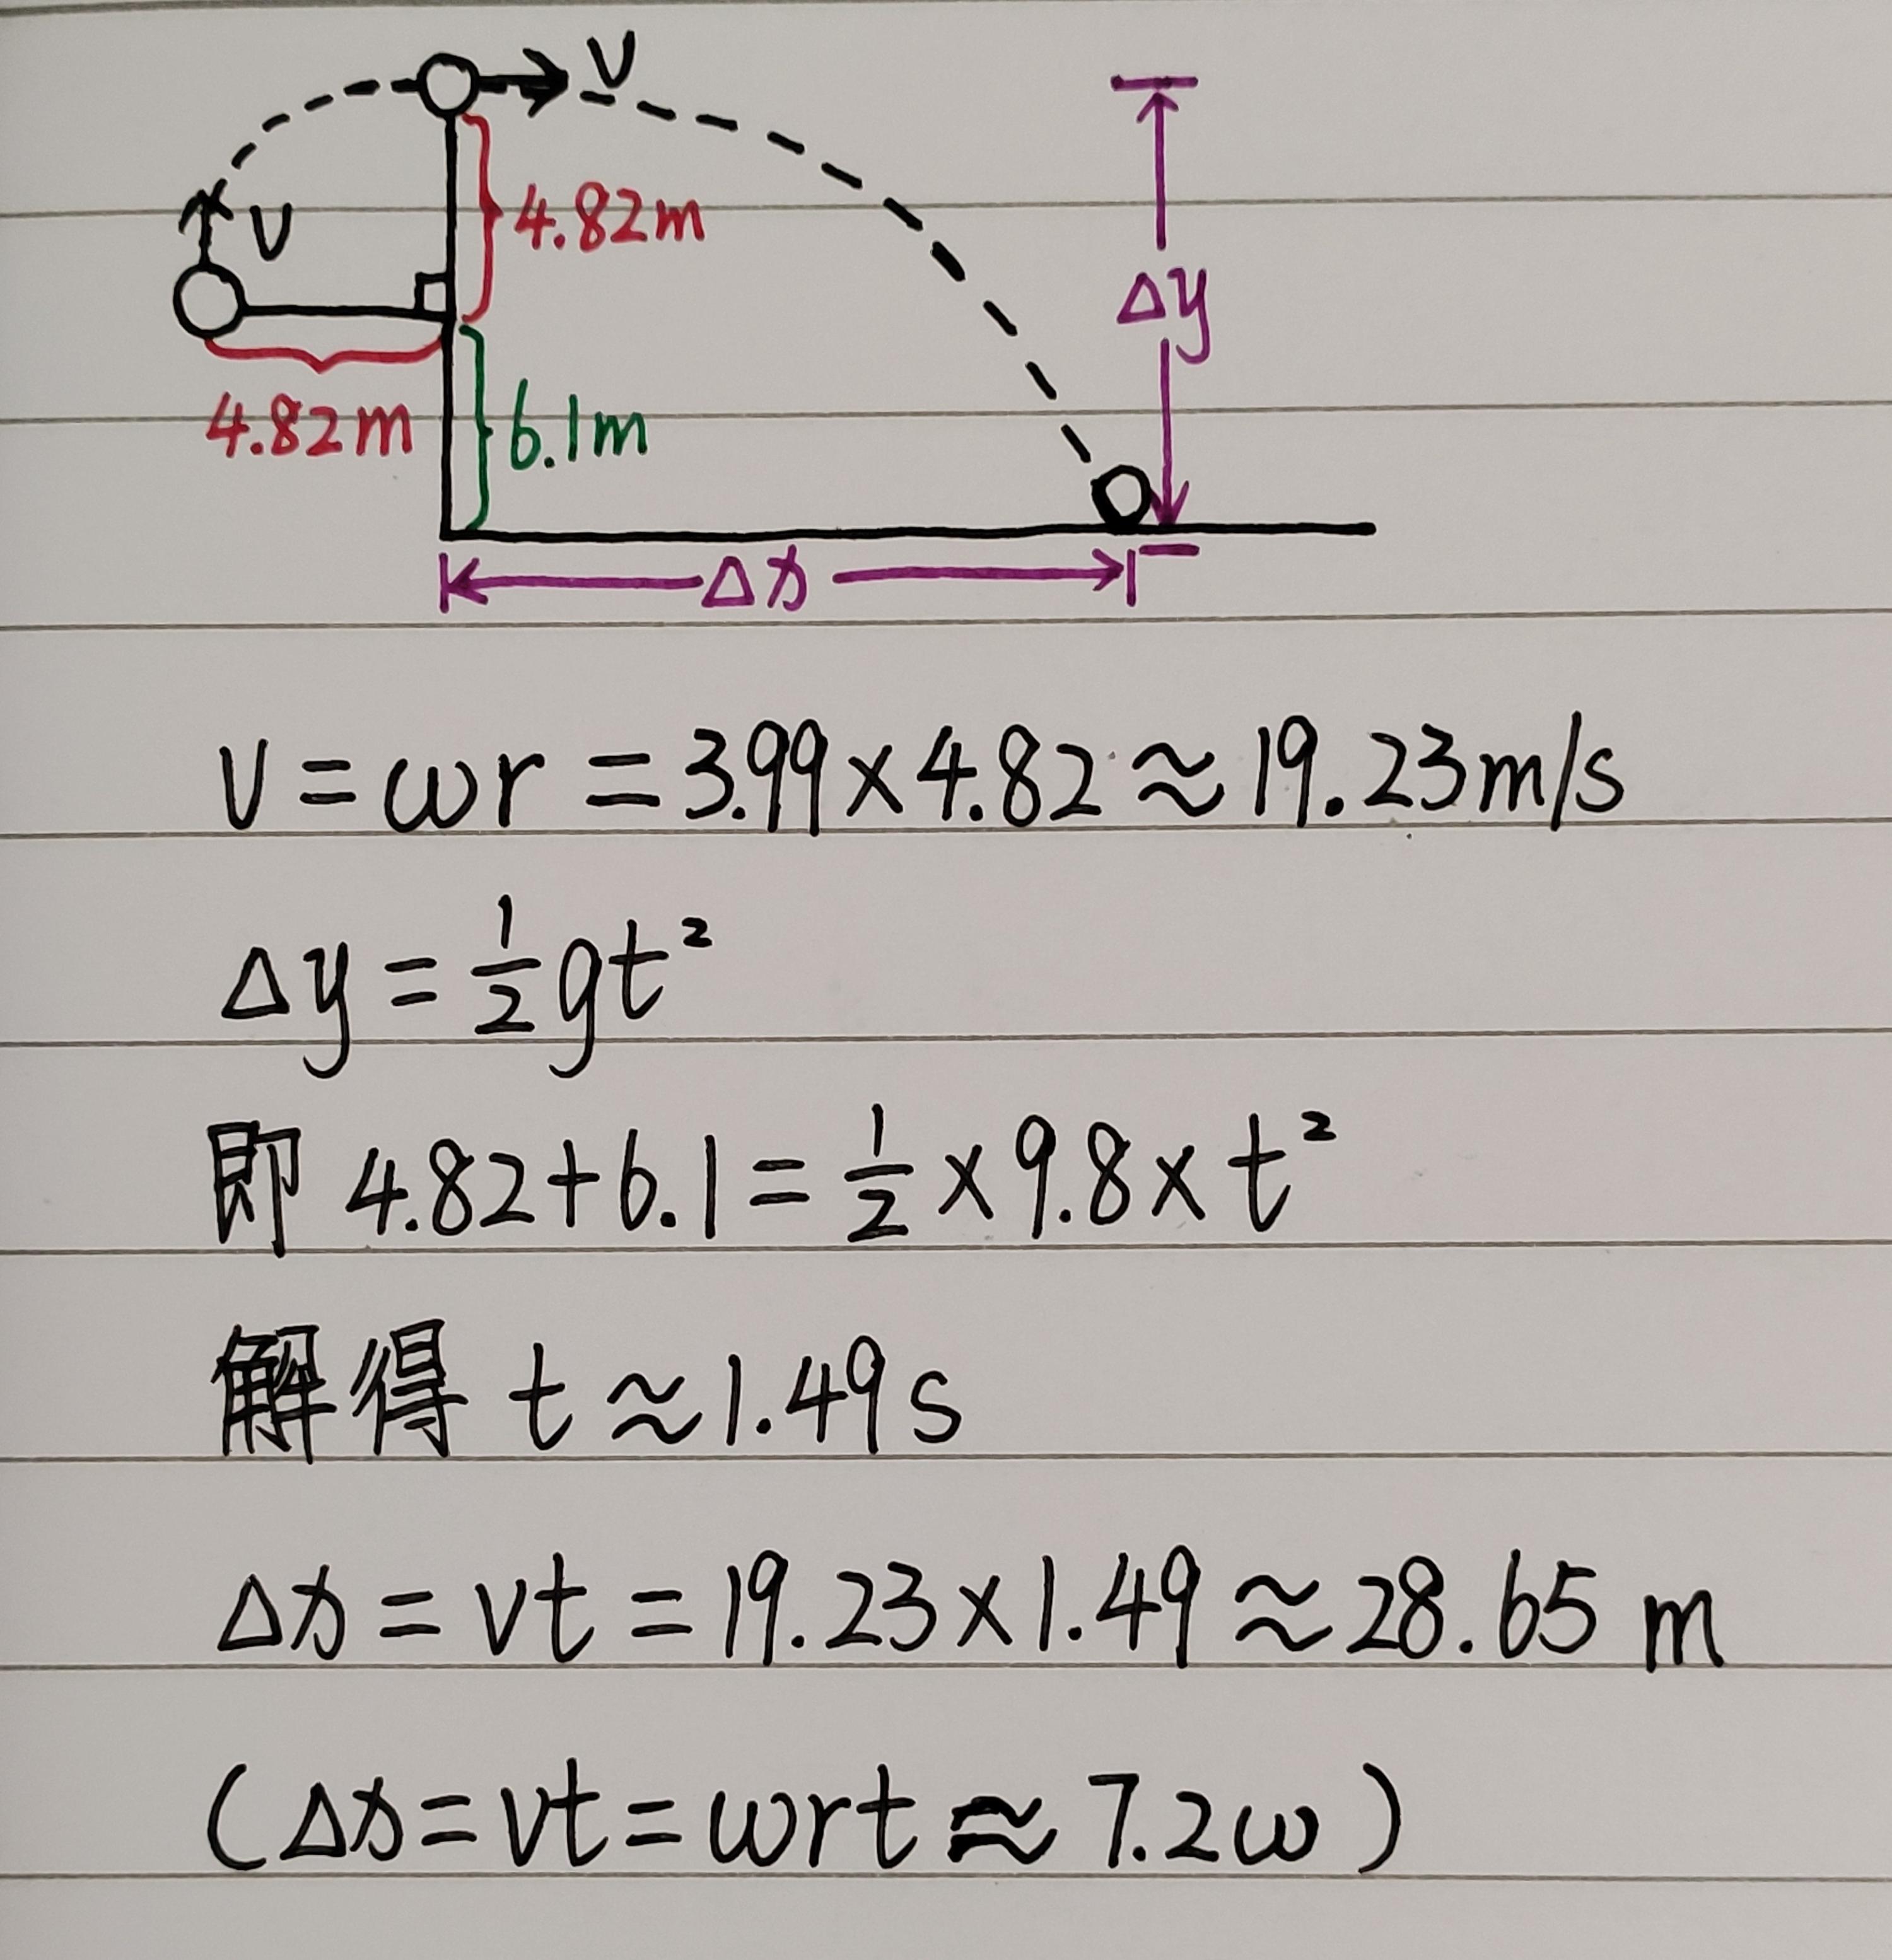 V
V
4.82m
Δy
4.82m
6.1m
Δx
V = ωr = 3.99×4.82 ≈ 19.23m/s
Δy = ½gt²
即 4.82+6.1 = ½×9.8×t²
解得 t≈1.49s
Δx = vt = 19.23×1.49 ≈ 28.65 m
(Δx = vt = ωrt ≈ 7.2ω)